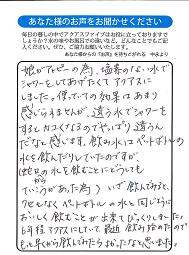 あなた様のお声をお聞かせください
毎日の暮しの中でアクアスファイブはお役に立っておりますで
しょうか？水の味やお風呂での違いなど、どんなことでもご記
入ください。ぜひ、ご協力お願いいたします。
あなた様からの「お声」を待ちこがれる
娘がアトピーの為、塩素のない水で
シャワーをしてあげたくてアクアスに
しました。使っていての効果はあまり
感じられませんが、違う水でシャワーを
するとカユくなるのでやっぱり違うん
だなと感じます。娘の飲み水はペットボトルの
水を飲んだりしていたのですが、
水を飲むことにどうしても
ていこうがあった為）いざ飲んでみると、
クセもなくペットボトルの水と同じように
おいしく飲むことが出来てびっくりしました。
6年程アクアスにしていて、最近飲み始めたので
もっと早くから飲んでみたらよかったなと思いました。